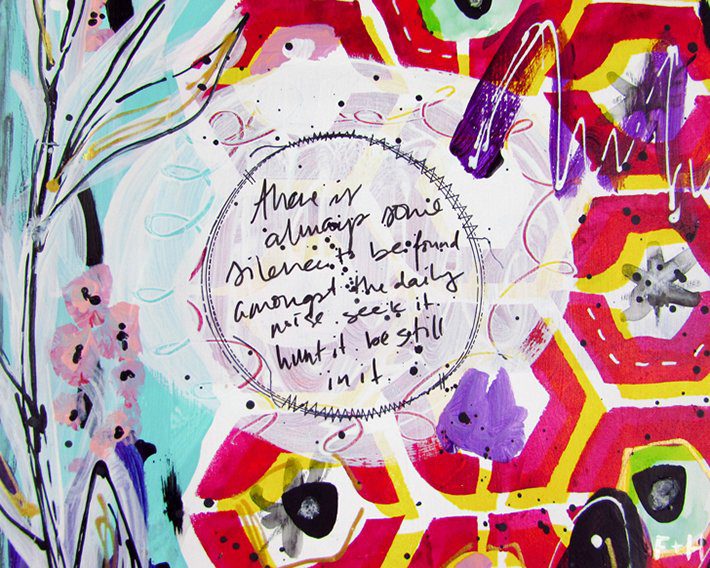 there is
always some
silence to be found
amongst the daily
noise. seek it.
hunt it. be still
in it.
F+H